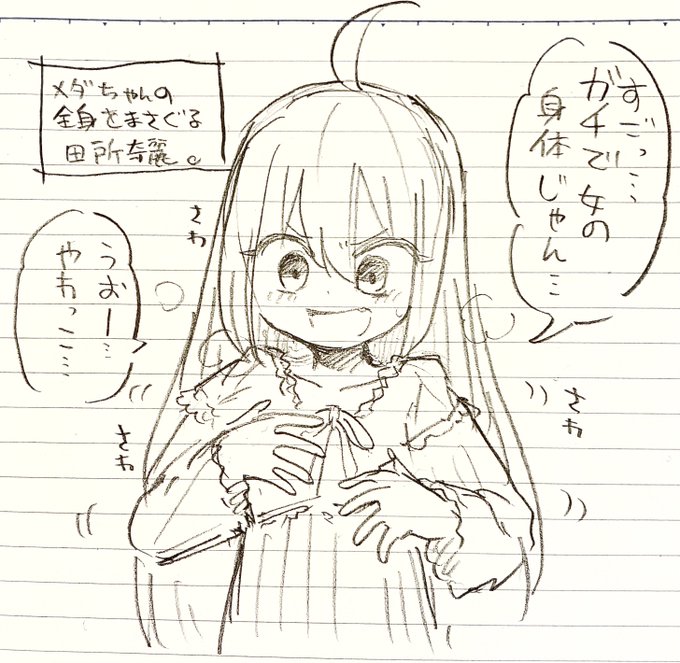 メダちゃんの
全身をまさぐる
田所奇麗。
すごっ…
ガチで女の
身体じゃん…
うおー…
やわっこ…
さわ
さわ
さわ